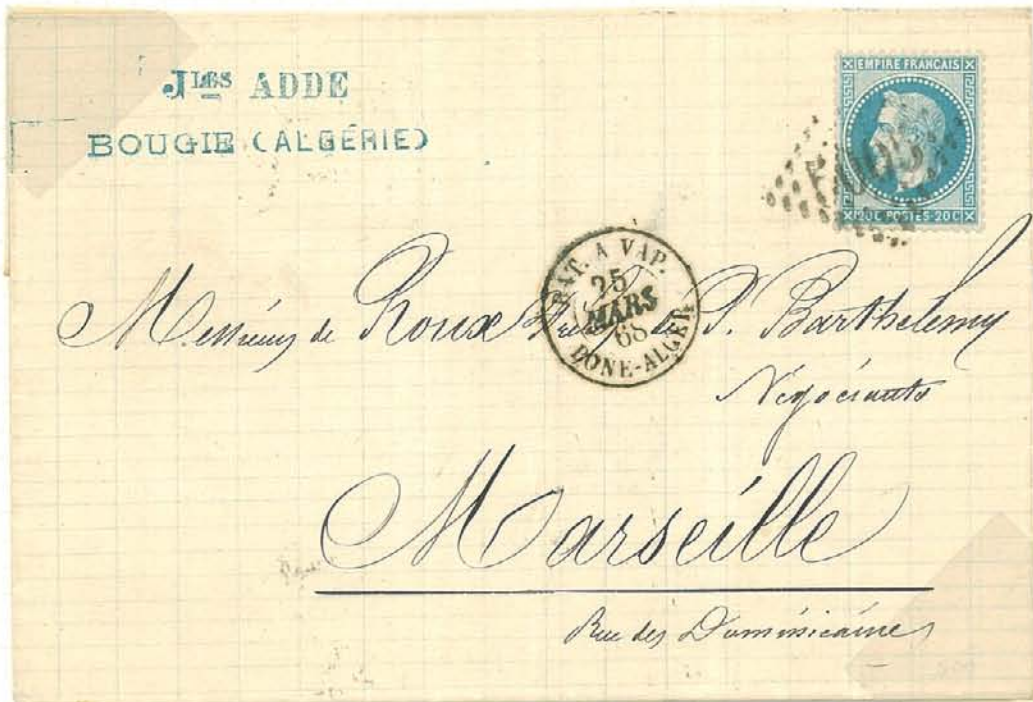 Jles ADDE
BOUGIE (ALGÉRIE)
EMPIRE FRANÇAIS
20C POSTES-20C
BAT. A VAP.
25
MARS
68
BONE-ALGER
Messieurs de Roux P. Barthelemy
Négociants
Marseille
Rue des Dominicaines